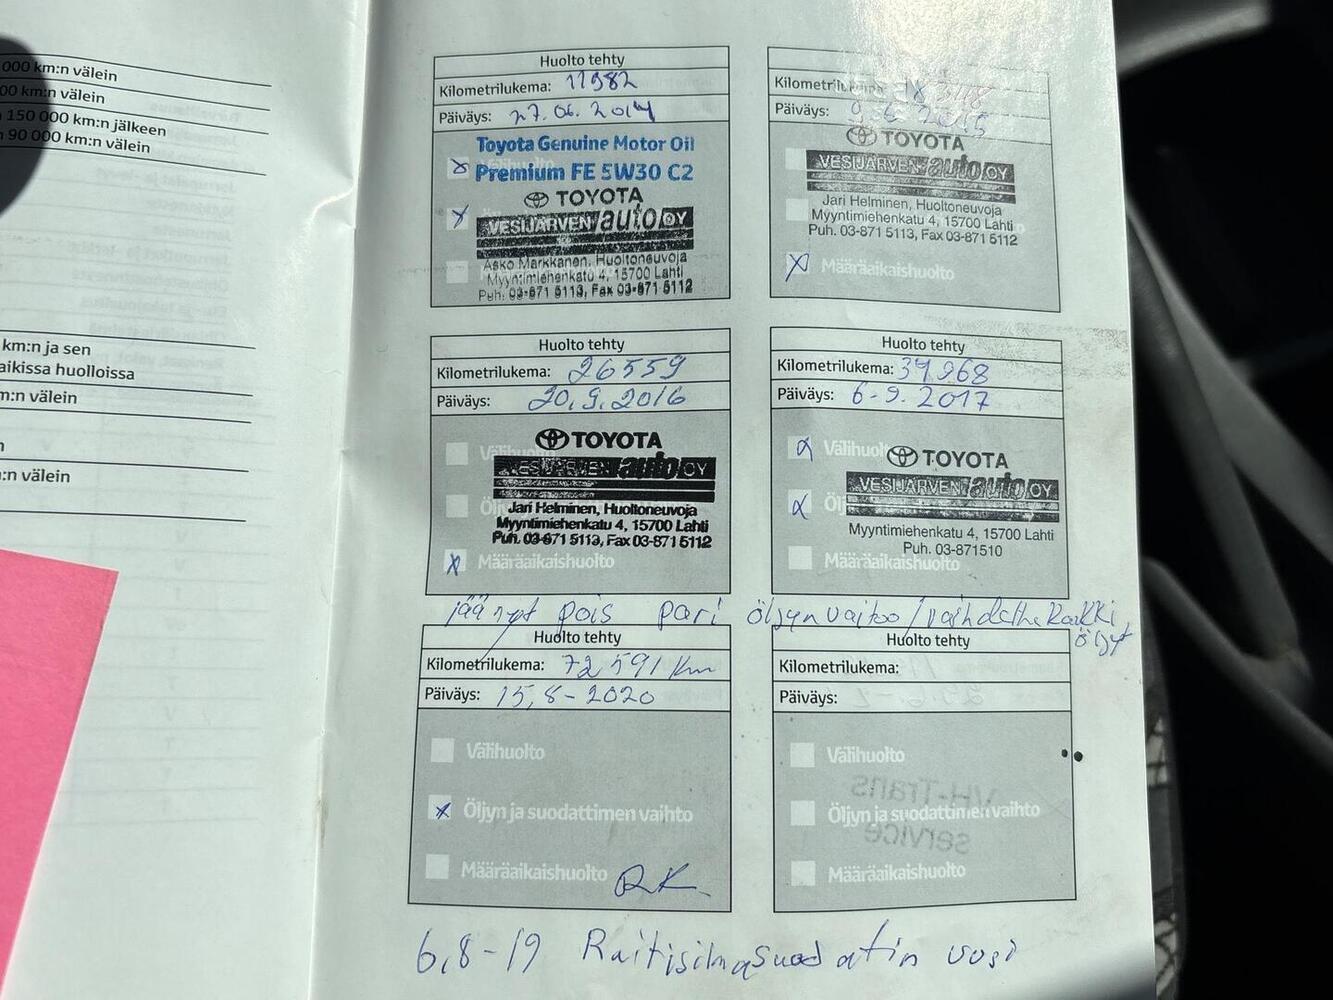 000 km:n välein
00 km:n välein
150 000 km:n jälkeen
90 000 km:n välein
km:n ja sen
aikissa huolloissa
m:n välein
n
:n välein
Huolto tehty
Kilometrilukema: 11982
Päiväys: 27.06.2014
Toyota Genuine Motor Oil
Premium FE 5W30 C2
TOYOTA
VESIJÄRVEN auto OY
Asko Markkanen, Huoltoneuvoja
Myyntimiehenkatu 4, 15700 Lahti
Puh. 03-871 5113, Fax 03-871 5112
Kilometrilukema: 18348
Päiväys: 9.6 2015
TOYOTA
VESIJÄRVEN auto OY
Jari Helminen, Huoltoneuvoja
Myyntimiehenkatu 4, 15700 Lahti
Puh. 03-871 5113, Fax 03-871 5112
X Määräaikaishuolto
Huolto tehty
Kilometrilukema: 26559
Päiväys: 20.9.2016
Välihuolto
TOYOTA
VESIJÄRVEN auto OY
Jari Helminen, Huoltoneuvoja
Myyntimiehenkatu 4, 15700 Lahti
Puh. 03-871 5113, Fax 03-871 5112
X Määräaikaishuolto
Huolto tehty
Kilometrilukema: 34968
Päiväys: 6-9. 2017
Välihuolto
TOYOTA
VESIJÄRVEN auto OY
Myyntimiehenkatu 4, 15700 Lahti
Puh. 03-871510
Määräaikaishuolto
jäänyt pois pari öljynvaitoo/vaihdettu kaikki
öljyt
Huolto tehty
Kilometrilukema: 72 591 km
Päiväys: 15,8-2020
Välihuolto
x Öljyn ja suodattimen vaihto
Määräaikaishuolto RK
Huolto tehty
Kilometrilukema:
Päiväys:
Välihuolto
Öljyn ja suodattimen vaihto
Määräaikaishuolto
VH-Trans
service
6,8-19 Raitisilmasuodatin uusi